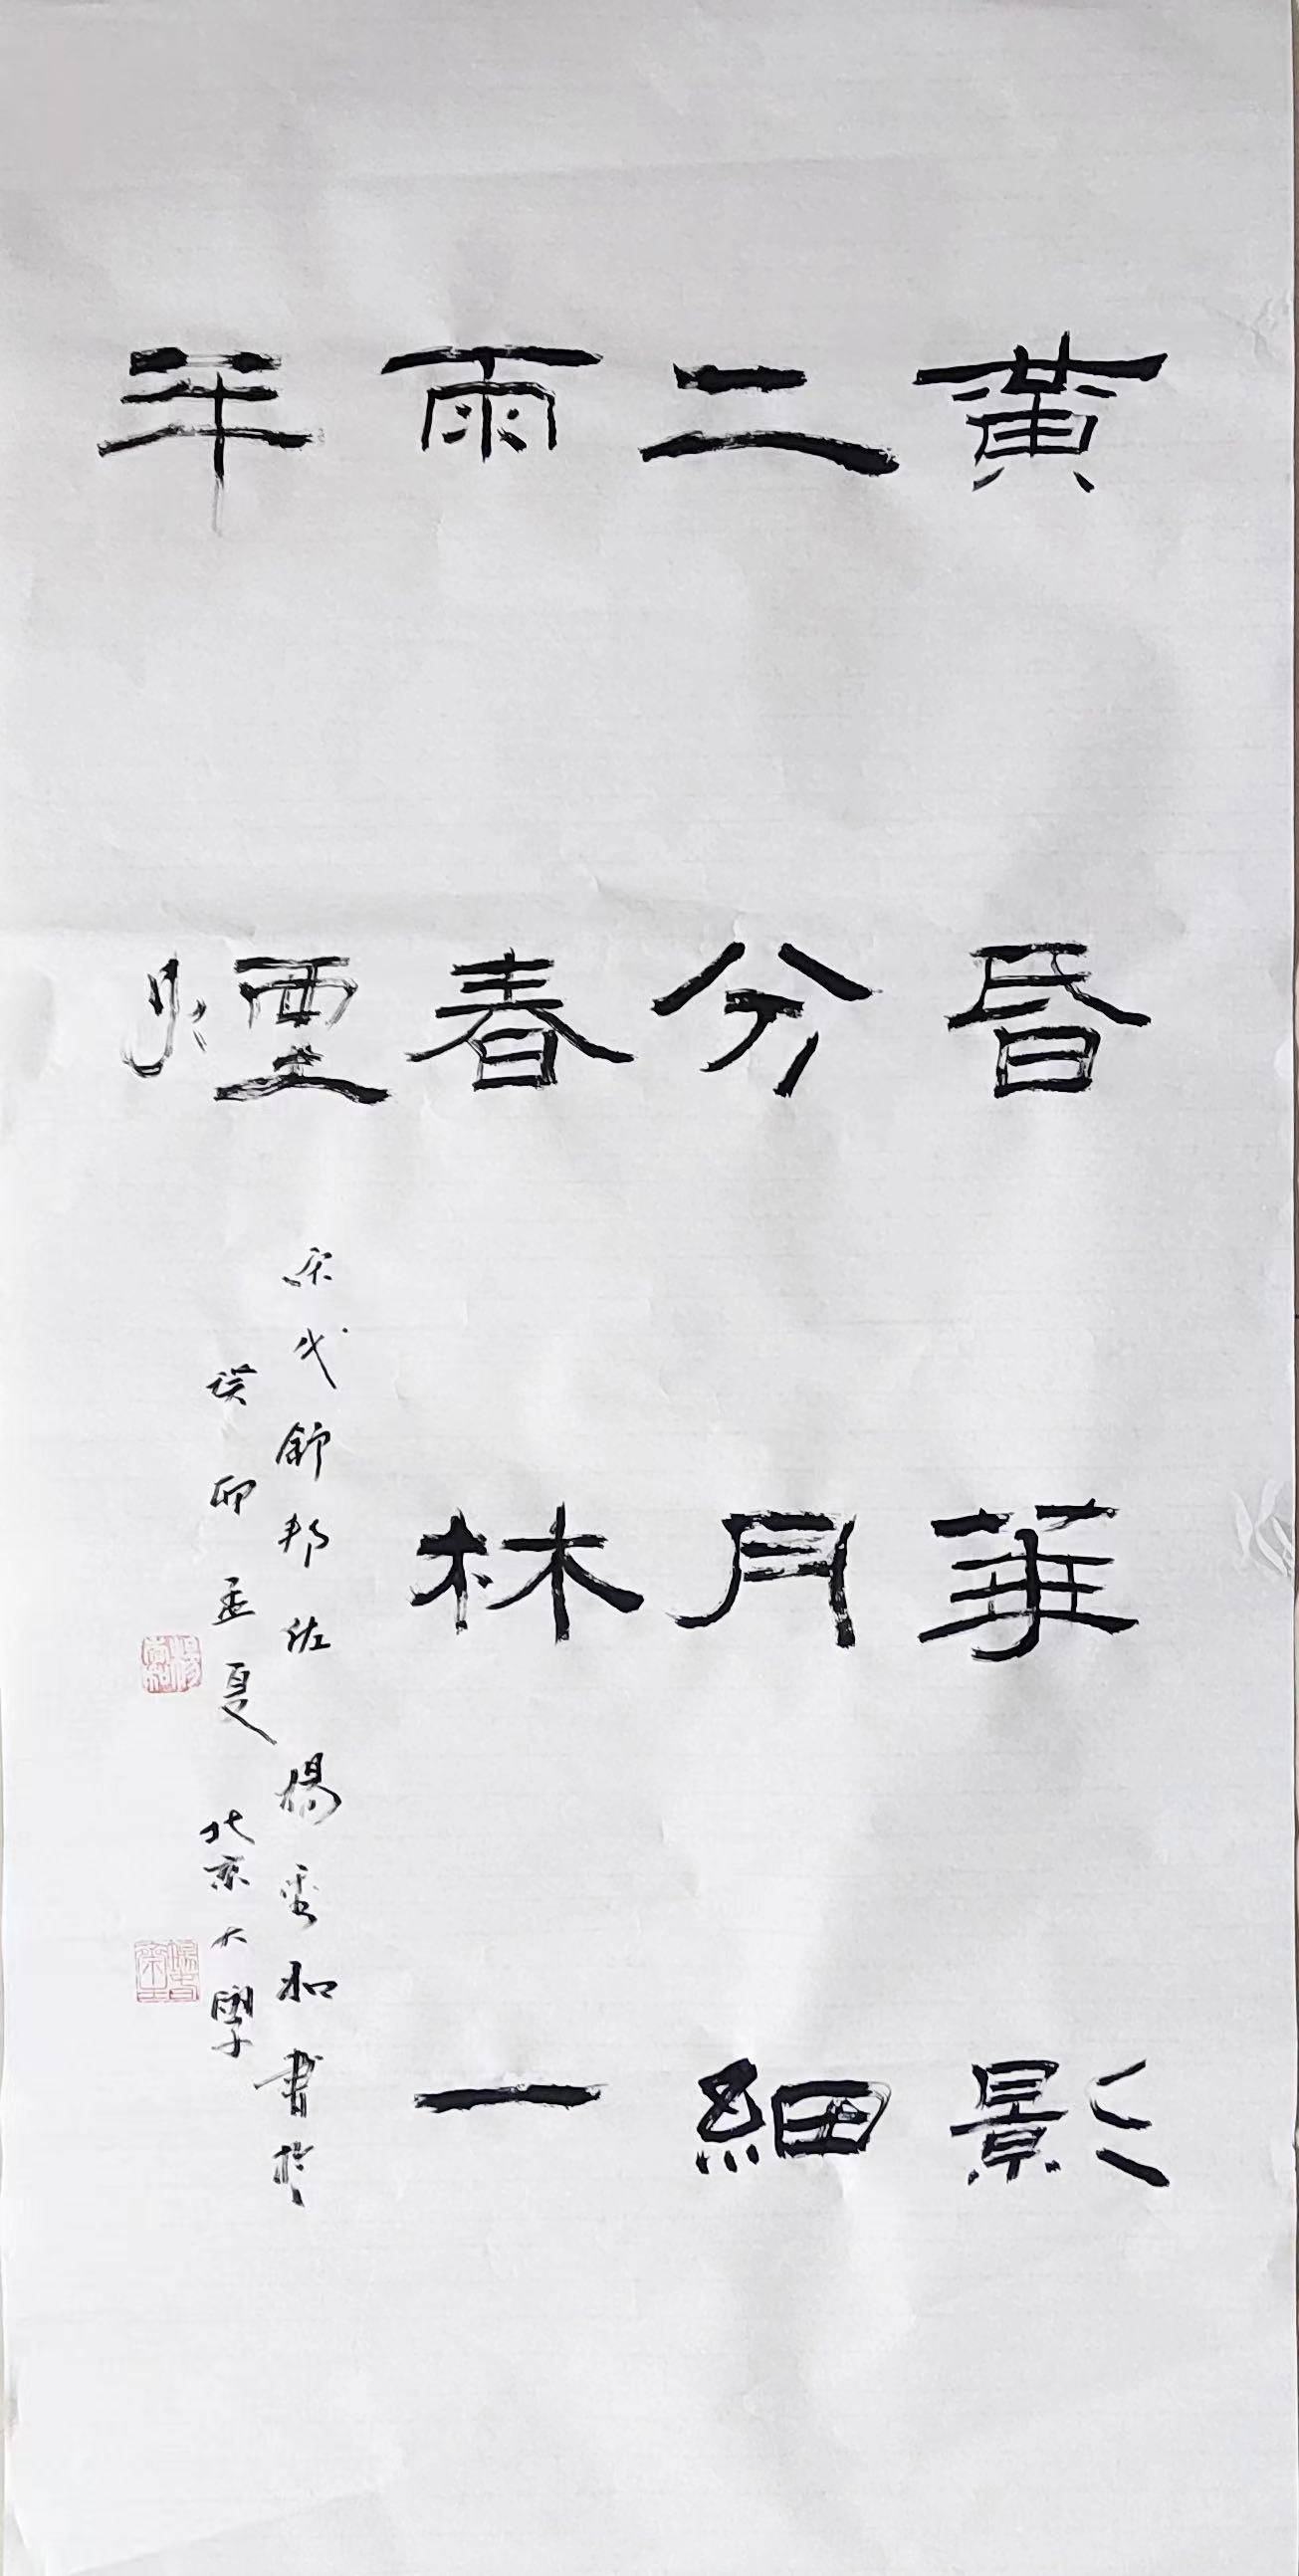 黃昏華影
二分月細
雨春林一
半煙
宋代舒邦佐 楊和書於
癸卯孟夏 北京大學